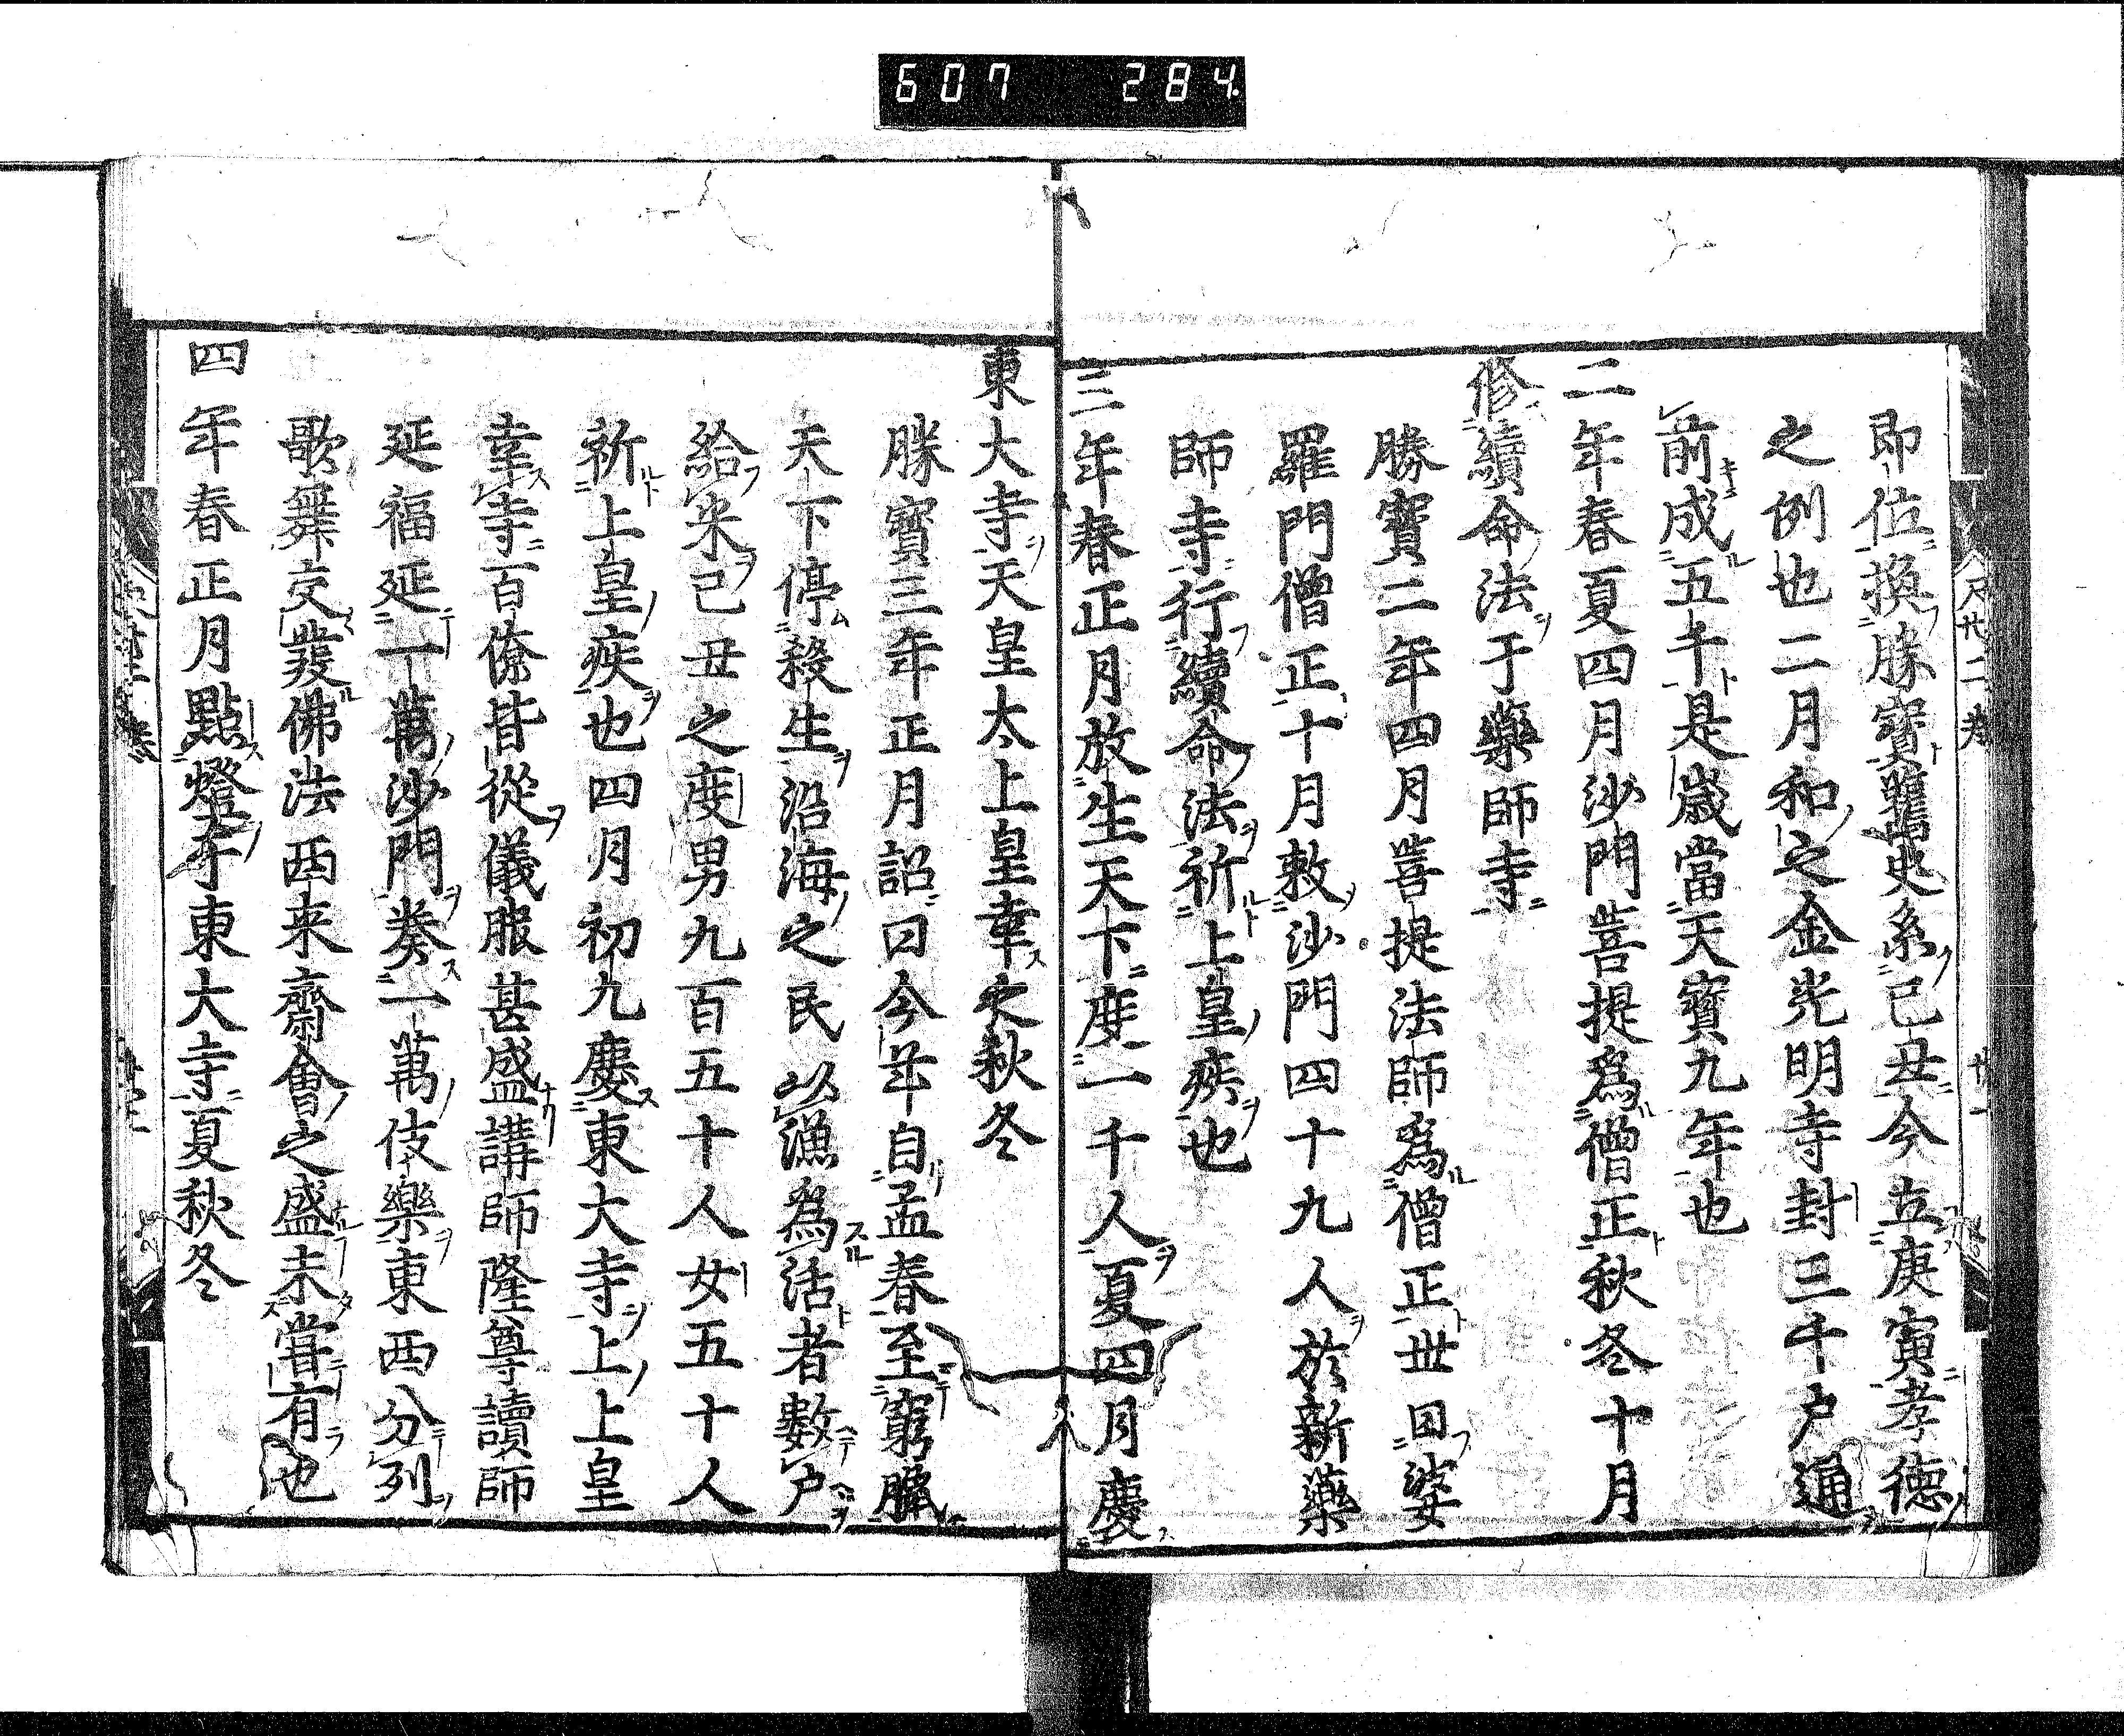 607 284
即位換勝寳舊史系己丑今立庚寅孝德
之例也二月和之金光明寺封三千戸通
前成五千是歲當天寳九年也
二年春夏四月沙門菩提爲僧正秋冬十月
修續命法于藥師寺
勝寳二年四月菩提法師爲僧正丗曰婆
羅門僧正十月敕沙門四十九人於新藥
師寺行續命法祈上皇疾也
三年春正月放生天下度一千人夏四月慶
東大寺天皇太上皇幸之秋冬
勝寳三年正月詔曰今年自孟春至窮臘
天下停殺生沿海之民以漁爲活者數戸
給米己丑之度男九百五十人女五十人
祈上皇疾也四月初九慶東大寺上上皇
幸寺百僚皆從儀服甚盛講師隆尊讀師
延福延一萬沙門奏一萬伎樂東西分列
歌舞交發佛法西来齋會之盛未甞有也
四年春正月點燈于東大寺夏秋冬